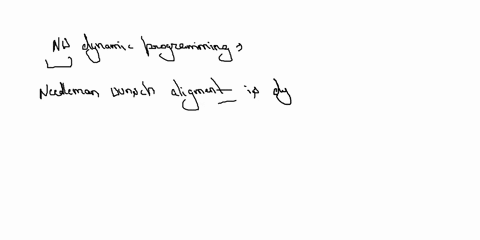 NW dynamic programming,
Needleman wunsch aligment is dy